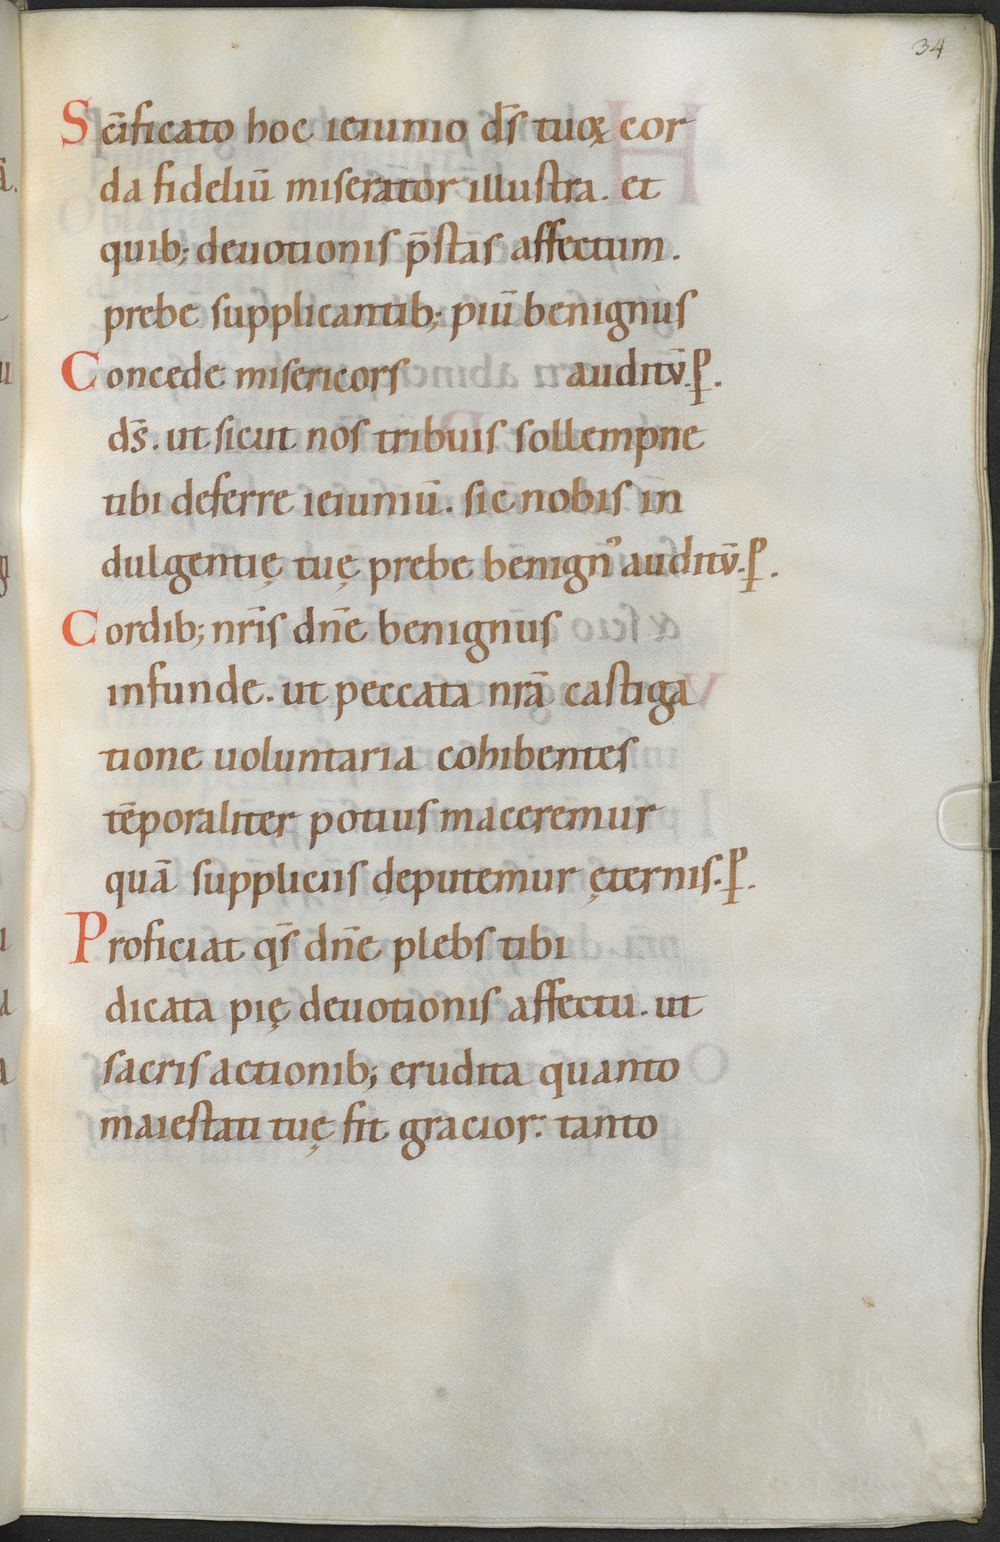 34
Scīficato hoc ieiunio dś tuoꝝ cor
da fideliū miserator illustra. et
quib; deuotionis p̄stas affectum.
prebe supplicantib; piū benignus
auditū. ꝑ.
Concede misericors
dś. ut sicut nos tribuis sollempne
tibi deferre ieiuniū. sic nobis in
dulgentię tuę prebe benignꝰ auditū. ꝑ.
Cordib; nr̄is dn̄e benignus
infunde. ut peccata nrā castiga
tione uoluntaria cohibentes
tēporaliter potius maceremur
quā suppliciis deputemur ęternis. ꝑ.
Proficiat qs̄ dn̄e plebs tibi
dicata pię deuotionis affectu. ut
sacris actionib; erudita quanto
maiestati tuę fit gracior: tanto